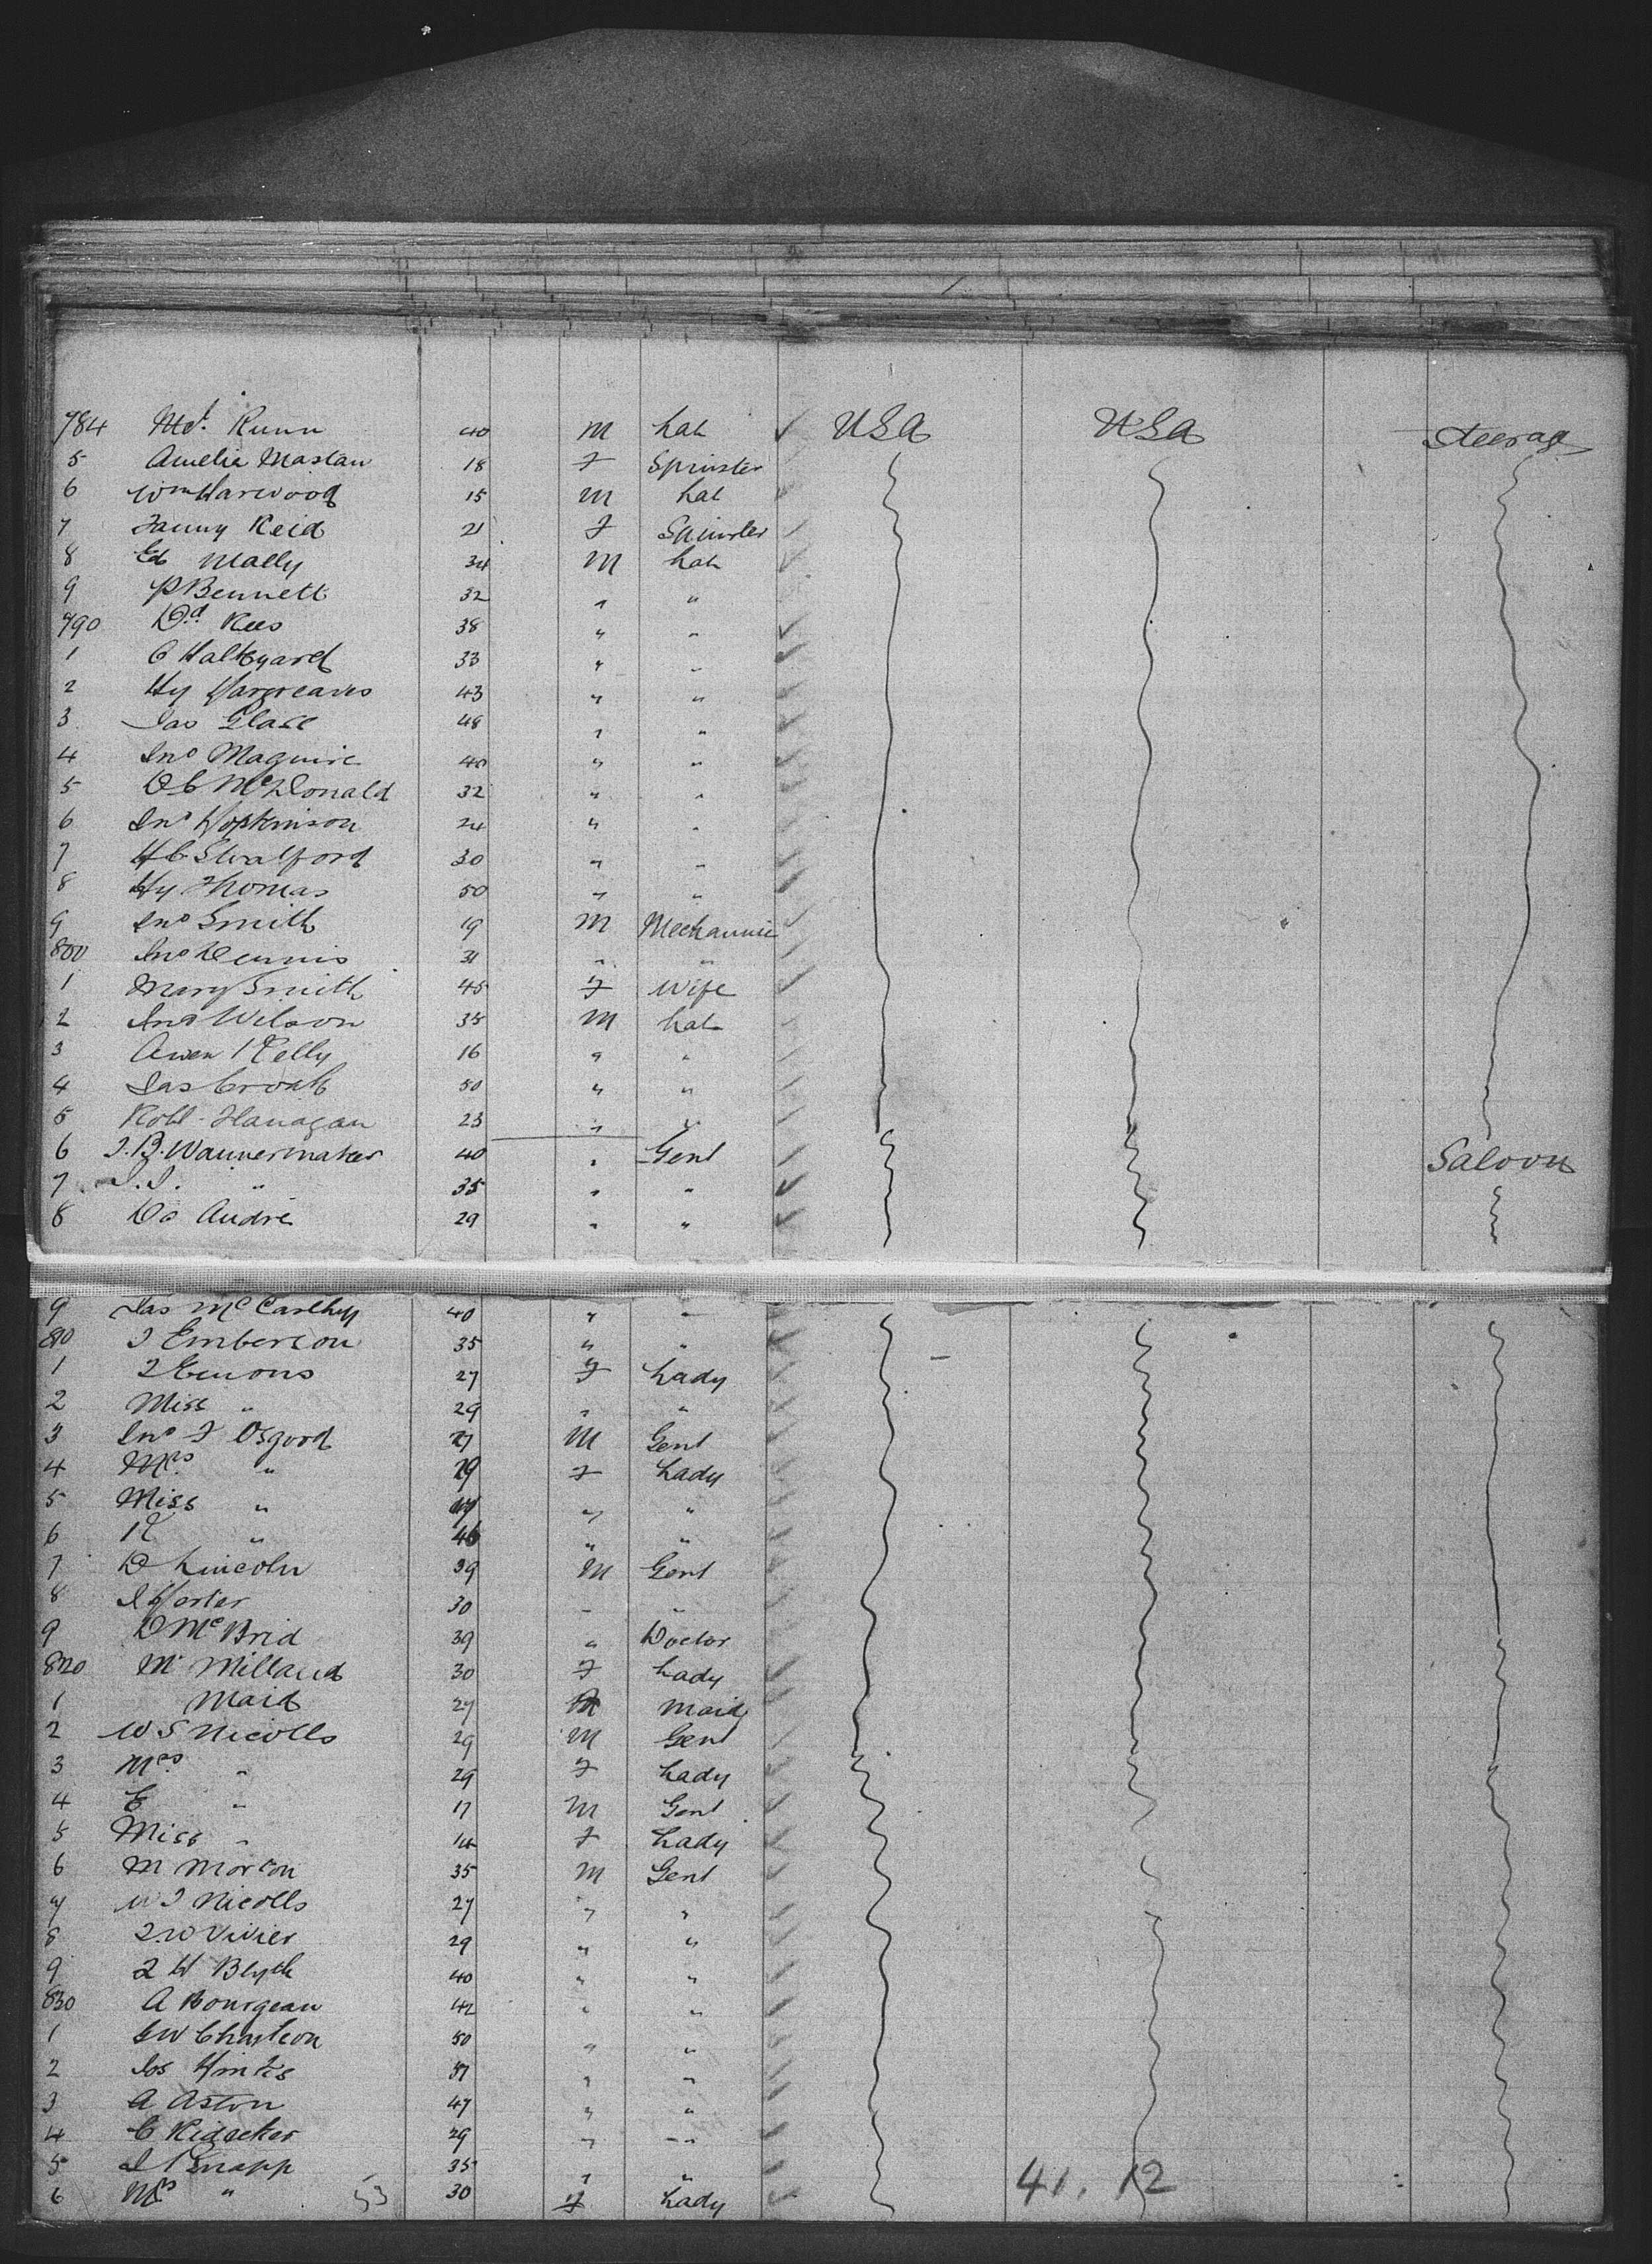 784 Md. Kunn 40 M Lab USA USA Steerage
5 Amelia Mastan 18 F Spinster
6 Wm Harwood 15 M Lab
7 Fanny Reid 21 F Spinster
8 Ed Mally 34 M Lab
9 P Bennett 32 " "
790 Dd. Rees 38 " "
1 C Halkyard 33 " "
2 Hy Hargreaves 43 " "
3 Jas Glase 48 " "
4 Jno Maguire 40 " "
5 D C McDonald 32 " "
6 Jno Hopkinson 24 " "
7 H C Stratford 30 " "
8 Hy Thomas 50 " "
9 Jno Smith 19 M Mechannic
800 Jno Dennis 31 " "
1 Mary Smith 45 F Wife
2 Jno Wilson 35 M Lab
3 Owen Kelly 16 " "
4 Jas Croak 50 " "
5 Robt Flanagan 23 " "
6 J. B. Wannermaker 40 " Gent Saloon
7 J. J. " 35 " "
8 Do Andre 29 " "
9 Jas McCarthy 40 " "
810 J Emberson 35 " "
1 J Emons 27 F Lady
2 Miss " 29 " "
3 Jno F Osgood 27 M Gent
4 Mrs " 29 F Lady
5 Miss " " "
6 K " 46 " "
7 D Lincoln 39 M Gent
8 J Horter 30 " "
9 D McBrid 39 " Doctor
820 M Milland 30 F Lady
1 Maid 27 Maid
2 W S Nicolls 29 M Gent
3 Mrs " 29 F Lady
4 E " 17 M Gent
5 Miss " 14 F Lady
6 M Morton 35 M Gent
7 W J Nicolls 27 " "
8 J W Vivier 29 " "
9 J H Blyth 40 " "
830 A Bourgeau 42 " "
1 G W Charlson 50 " "
2 Jos Hinks 37 " "
3 A Aston 47 " "
4 C Ridacker 29 " "
5 J Knapp 35 " "
6 Mrs " 53 30 F Lady 41. 12